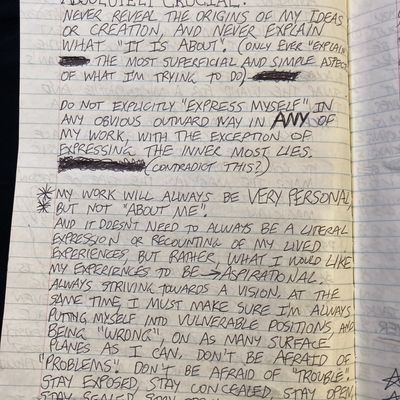 ABSOLUTELY CRUCIAL:
NEVER REVEAL THE ORIGINS OF MY IDEAS
OR CREATION, AND NEVER EXPLAIN
WHAT "IT IS ABOUT". (ONLY EVER "EXPLAIN"
THE MOST SUPERFICIAL AND SIMPLE ASPECT
OF WHAT I'M TRYING TO DO)
DO NOT EXPLICITLY "EXPRESS MYSELF" IN
ANY OBVIOUS OUTWARD WAY IN ANY OF
MY WORK, WITH THE EXCEPTION OF
EXPRESSING THE INNER MOST LIES.
(CONTRADICT THIS?)
MY WORK WILL ALWAYS BE VERY PERSONAL,
BUT NOT "ABOUT ME".
AND IT DOESN'T NEED TO ALWAYS BE A LITERAL
EXPRESSION OR RECOUNTING OF MY LIVED
EXPERIENCES, BUT RATHER, WHAT I WOULD LIKE
MY EXPERIENCES TO BE → ASPIRATIONAL.
ALWAYS STRIVING TOWARDS A VISION. AT THE
SAME TIME, I MUST MAKE SURE I'M ALWAYS
PUTTING MYSELF INTO VULNERABLE POSITIONS, AND
BEING "WRONG", ON AS MANY SURFACE
PLANES AS I CAN. DON'T BE AFRAID OF
"PROBLEMS". DON'T BE AFRAID OF "TROUBLE".
STAY EXPOSED, STAY CONCEALED, STAY OPEN,
STAY SEALED, STAY